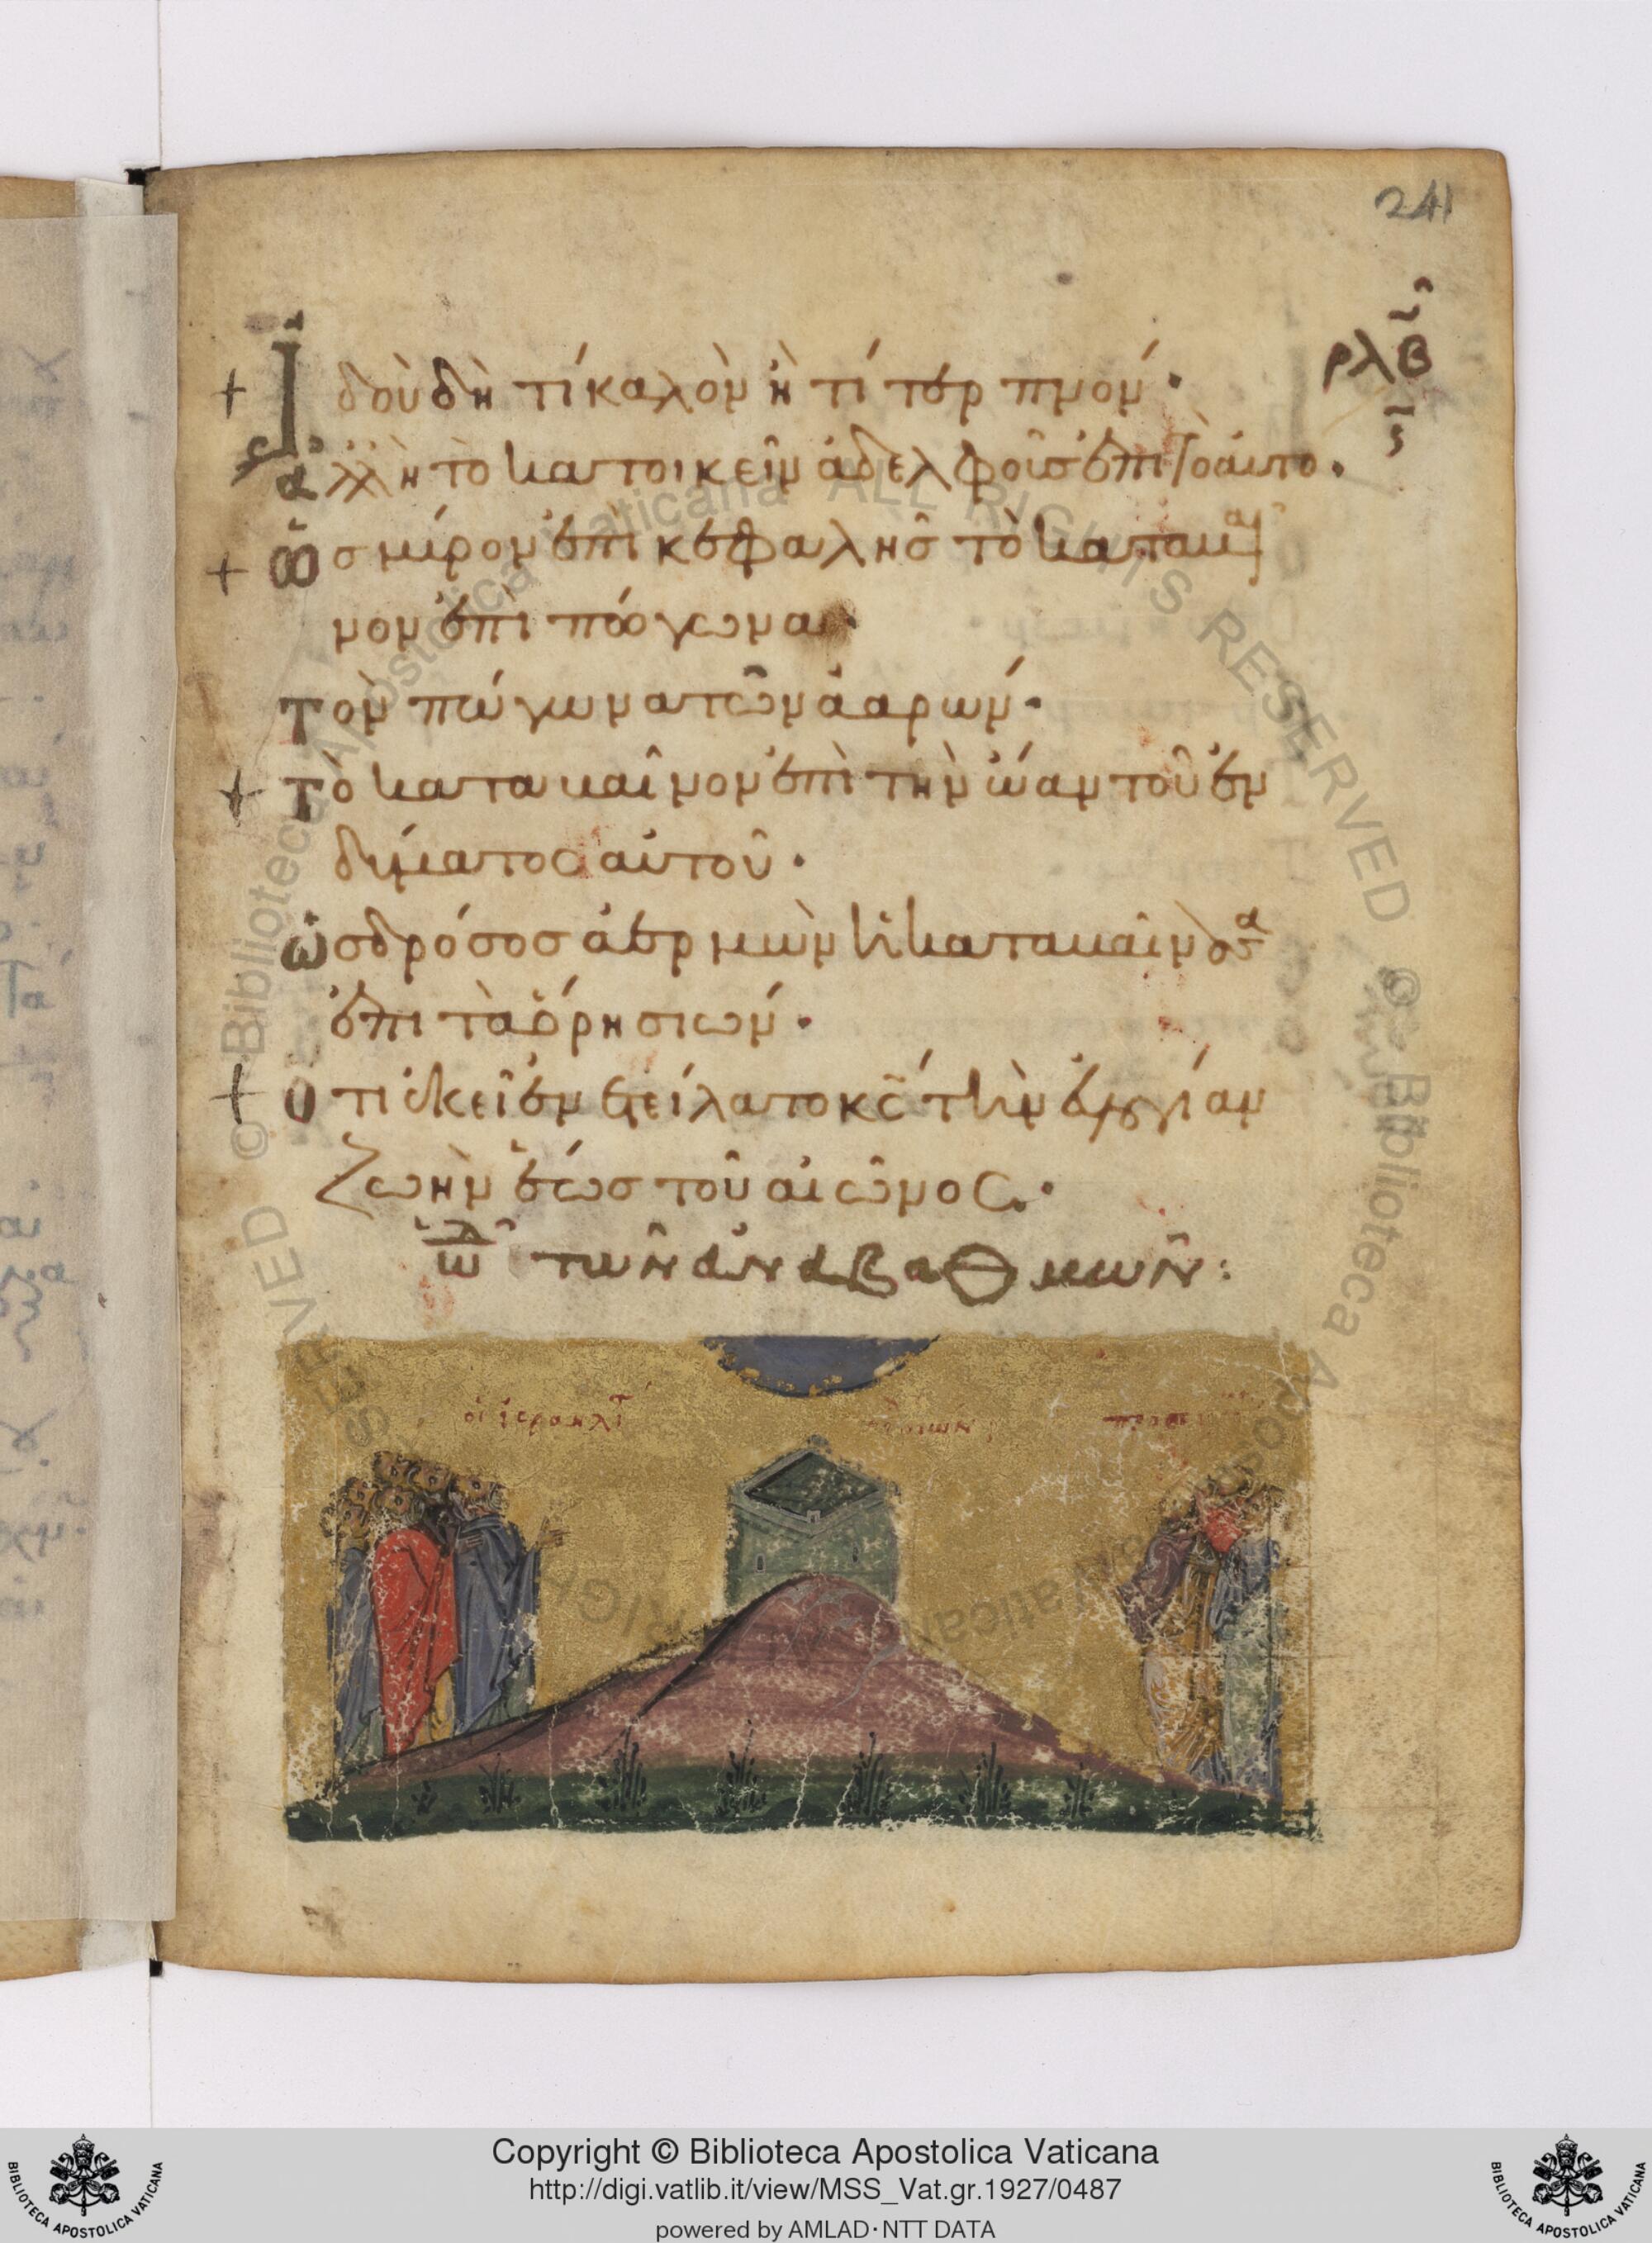 241
ρλβ
ϛ
Ἰδοὺ δὴ τί καλὸν ἢ τί τερπνόν·
ἀλλ' ἢ τὸ κατοικεῖν ἀδελφοὺς ἐπι τὸ αὐτό.
Ὡς μύρον ἐπὶ κεφαλῆς τὸ καταβαῖ
νον ἐπὶ πώγωνα·
Τὸν πώγωνα τὸν ἀαρών·
Τὸ καταβαῖνον ἐπὶ τὴν ὤαν τοῦ ἐν
δύματος αὐτοῦ·
Ὡς δρόσος ἀερμὼν ἡ καταβαίνουσα
ἐπι τὰ ὄρη σιών·
Ὅτι ἐκεῖ ἐνετείλατο κς τὴν εὐλογίαν
ζωὴν ἕως τοῦ αἰῶνος·
ᾠδὴ τῶν ἀναβαθμῶν:
Copyright © Biblioteca Apostolica Vaticana
http://digi.vatlib.it/view/MSS_Vat.gr.1927/0487
powered by AMLAD·NTT DATA
BIBLIOTECA APOSTOLICA VATICANA
BIBLIOTECA APOSTOLICA VATICANA